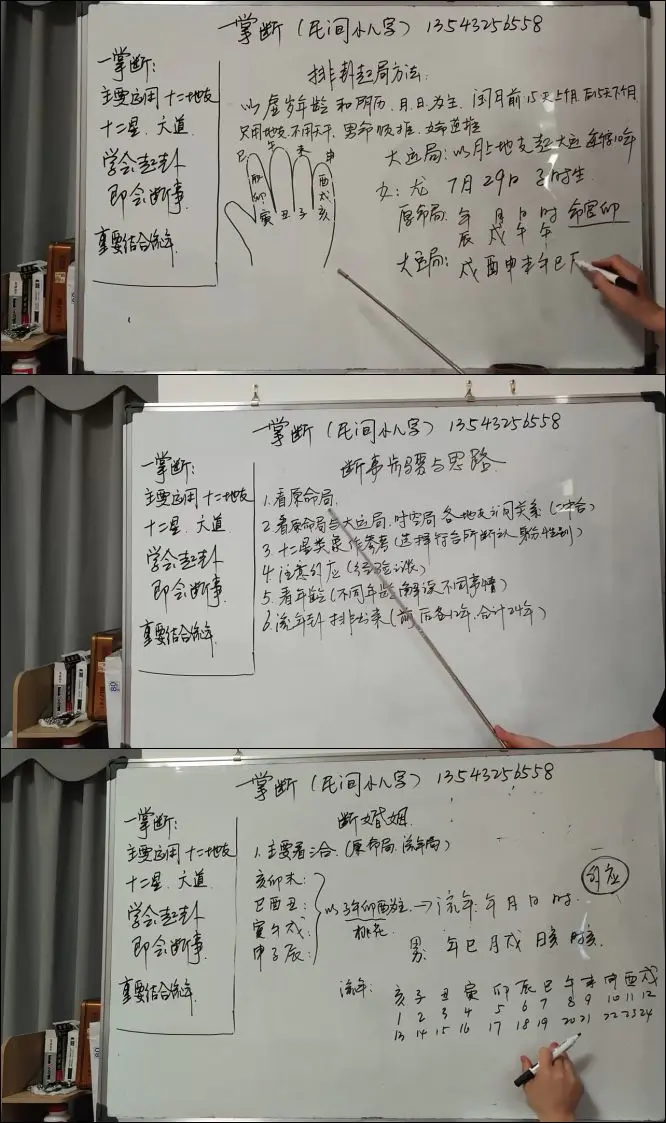 一掌断（民间小八字）13543256558
一掌断：
主要运用十二地支
十二星、六道
学会起卦
即会断事
重要结合流年
排卦起局方法：
以虚岁年龄和阴历、月、日为主，闰月前15天上个月后15天下个月
只用地支、不用天干、男命顺推、女命逆推
巳 午 未 申
辰 卯 寅 丑 子 亥 戌 酉
大运局：以月上地支起大运每字10年
女：龙 7月29日 子时生
原命局：年 月 日 时 命宫卯
辰 戌 午 午
大运局：戌 酉 申 未 午 巳
一掌断（民间小八字）13543256558
一掌断：
主要运用十二地支
十二星、六道
学会起卦
即会断事
重要结合流年
断事步骤与思路
1.看原命局
2.看原命局与大运局、时空局各地支之间关系（冲合）
3.十二星类象作参考（选择符合所断之人身份性别）
4.注意外应（经验之谈）
5.看年龄（不同年龄解读不同事情）
6.流年卦排出来（前后各12年，合计24年）
80
一掌断（民间小八字）13543256558
一掌断：
主要运用十二地支
十二星、六道
学会起卦
即会断事
重要结合流年
断婚姻
1.主要看三合（原命局、流年局）
亥卯未：
巳酉丑：
寅午戌：
申子辰：
以子午卯酉为主→流年：年 月 日 时
桃花
外应
男：年巳 月戌 日亥 时亥
流年：亥 子 丑 寅 卯 辰 巳 午 未 申 酉 戌
1 2 3 4 5 6 7 8 9 10 11 12
13 14 15 16 17 18 19 20 21 22 23 24